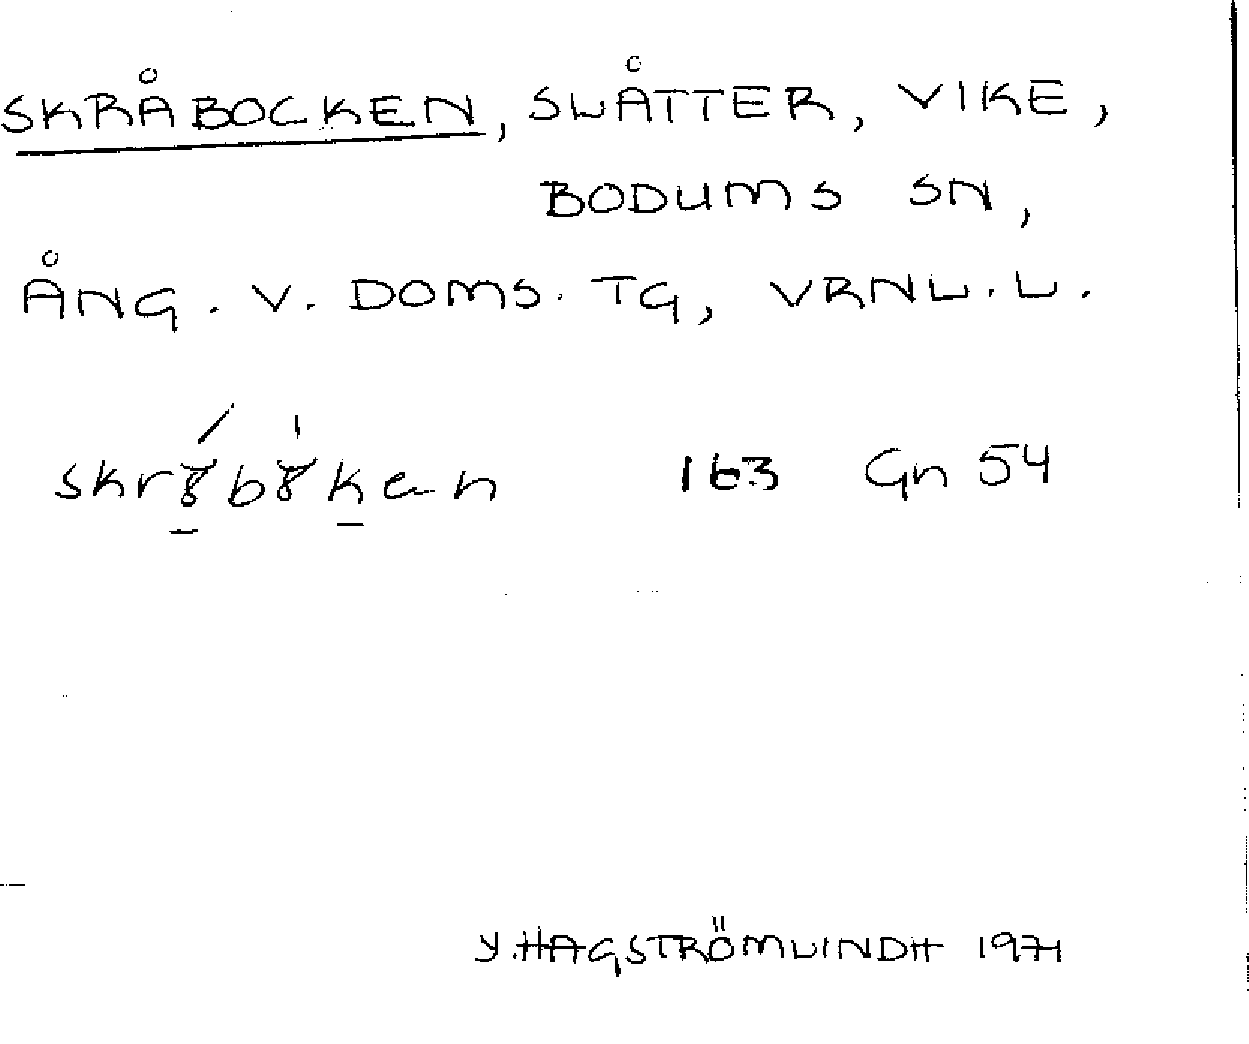 SKRÅBOCKEN, SLÅTTER, VIKE,
BODUMS SN,
ÅNG. V. DOMS. TG, VRNL. L.
163 Gn 54
Y. HAGSTRÖMLINDH 1971